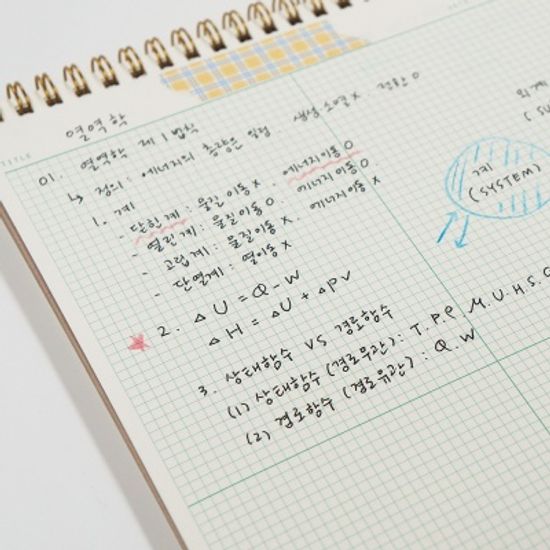 TITLE
열역학
01. 열역학 제 1 법칙
↳ 정의: 에너지의 총량은 일정 생성·소멸 x 전환 o
1. 계
- 닫힌계: 물질이동 x. 에너지이동 o
- 열린계: 물질이동 o. 에너지이동 o
- 고립계: 물질이동 x. 에너지이동 x
- 단열계: 열이동 x
2. △U = Q - W
△H = △U + △PV
3. 상태함수 VS 경로함수
(1) 상태함수 (경로무관): T. P. ρ. M. U. H. S. G
(2) 경로함수 (경로유관): Q. W
외계
계
(SYSTEM)